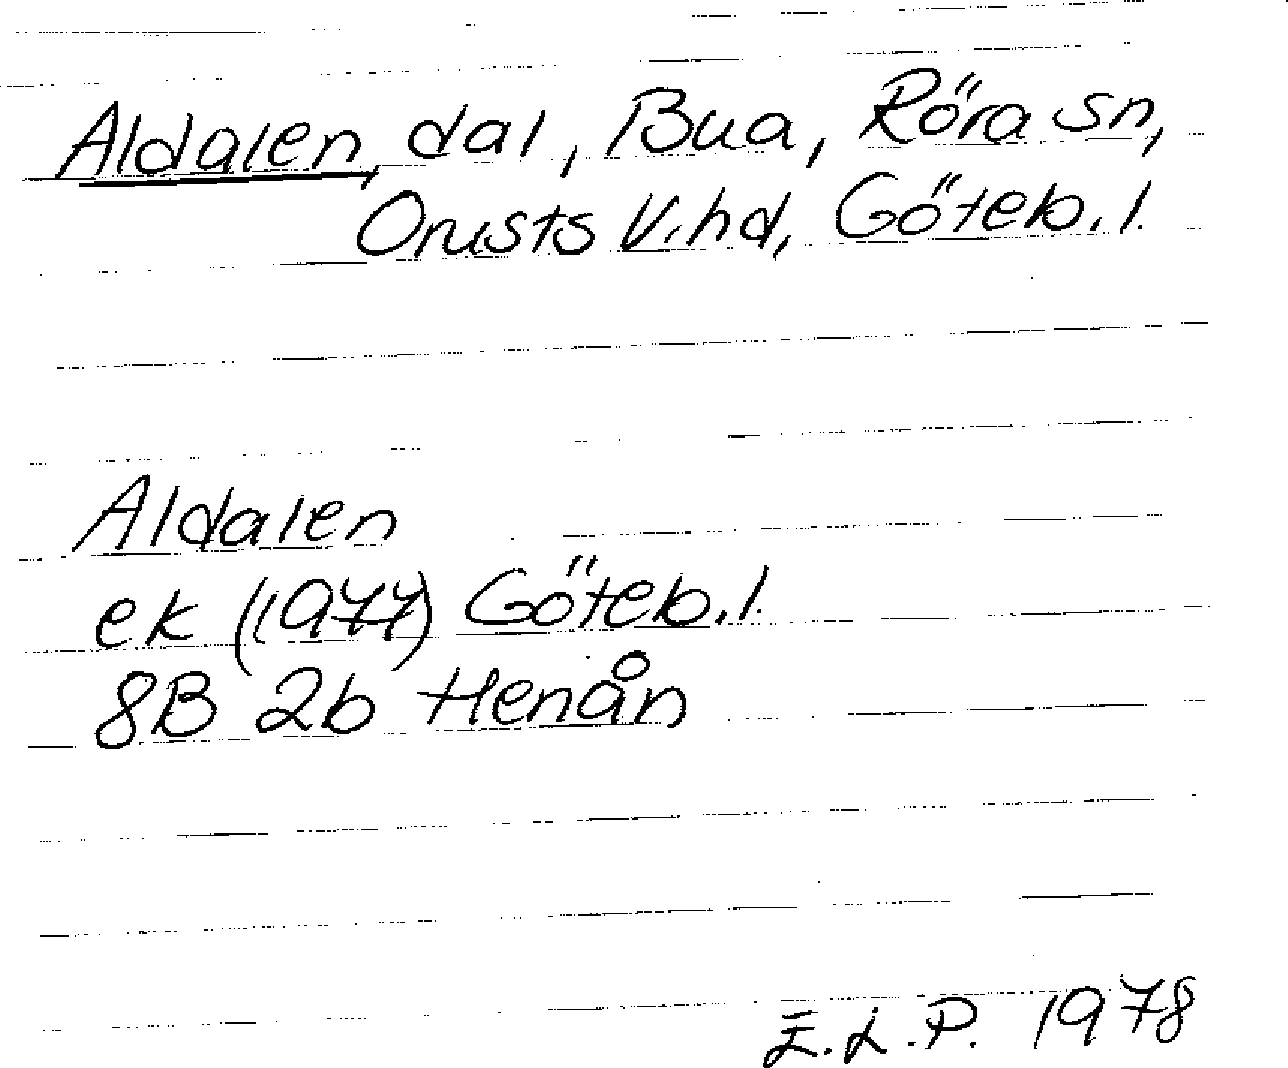 Aldalen, dal, Bua, Röra sn,
Orusts V. hd, Göteb. l.
Aldalen
ek (1977) Göteb. l.
8B 2b Henån
E.L.P. 1978